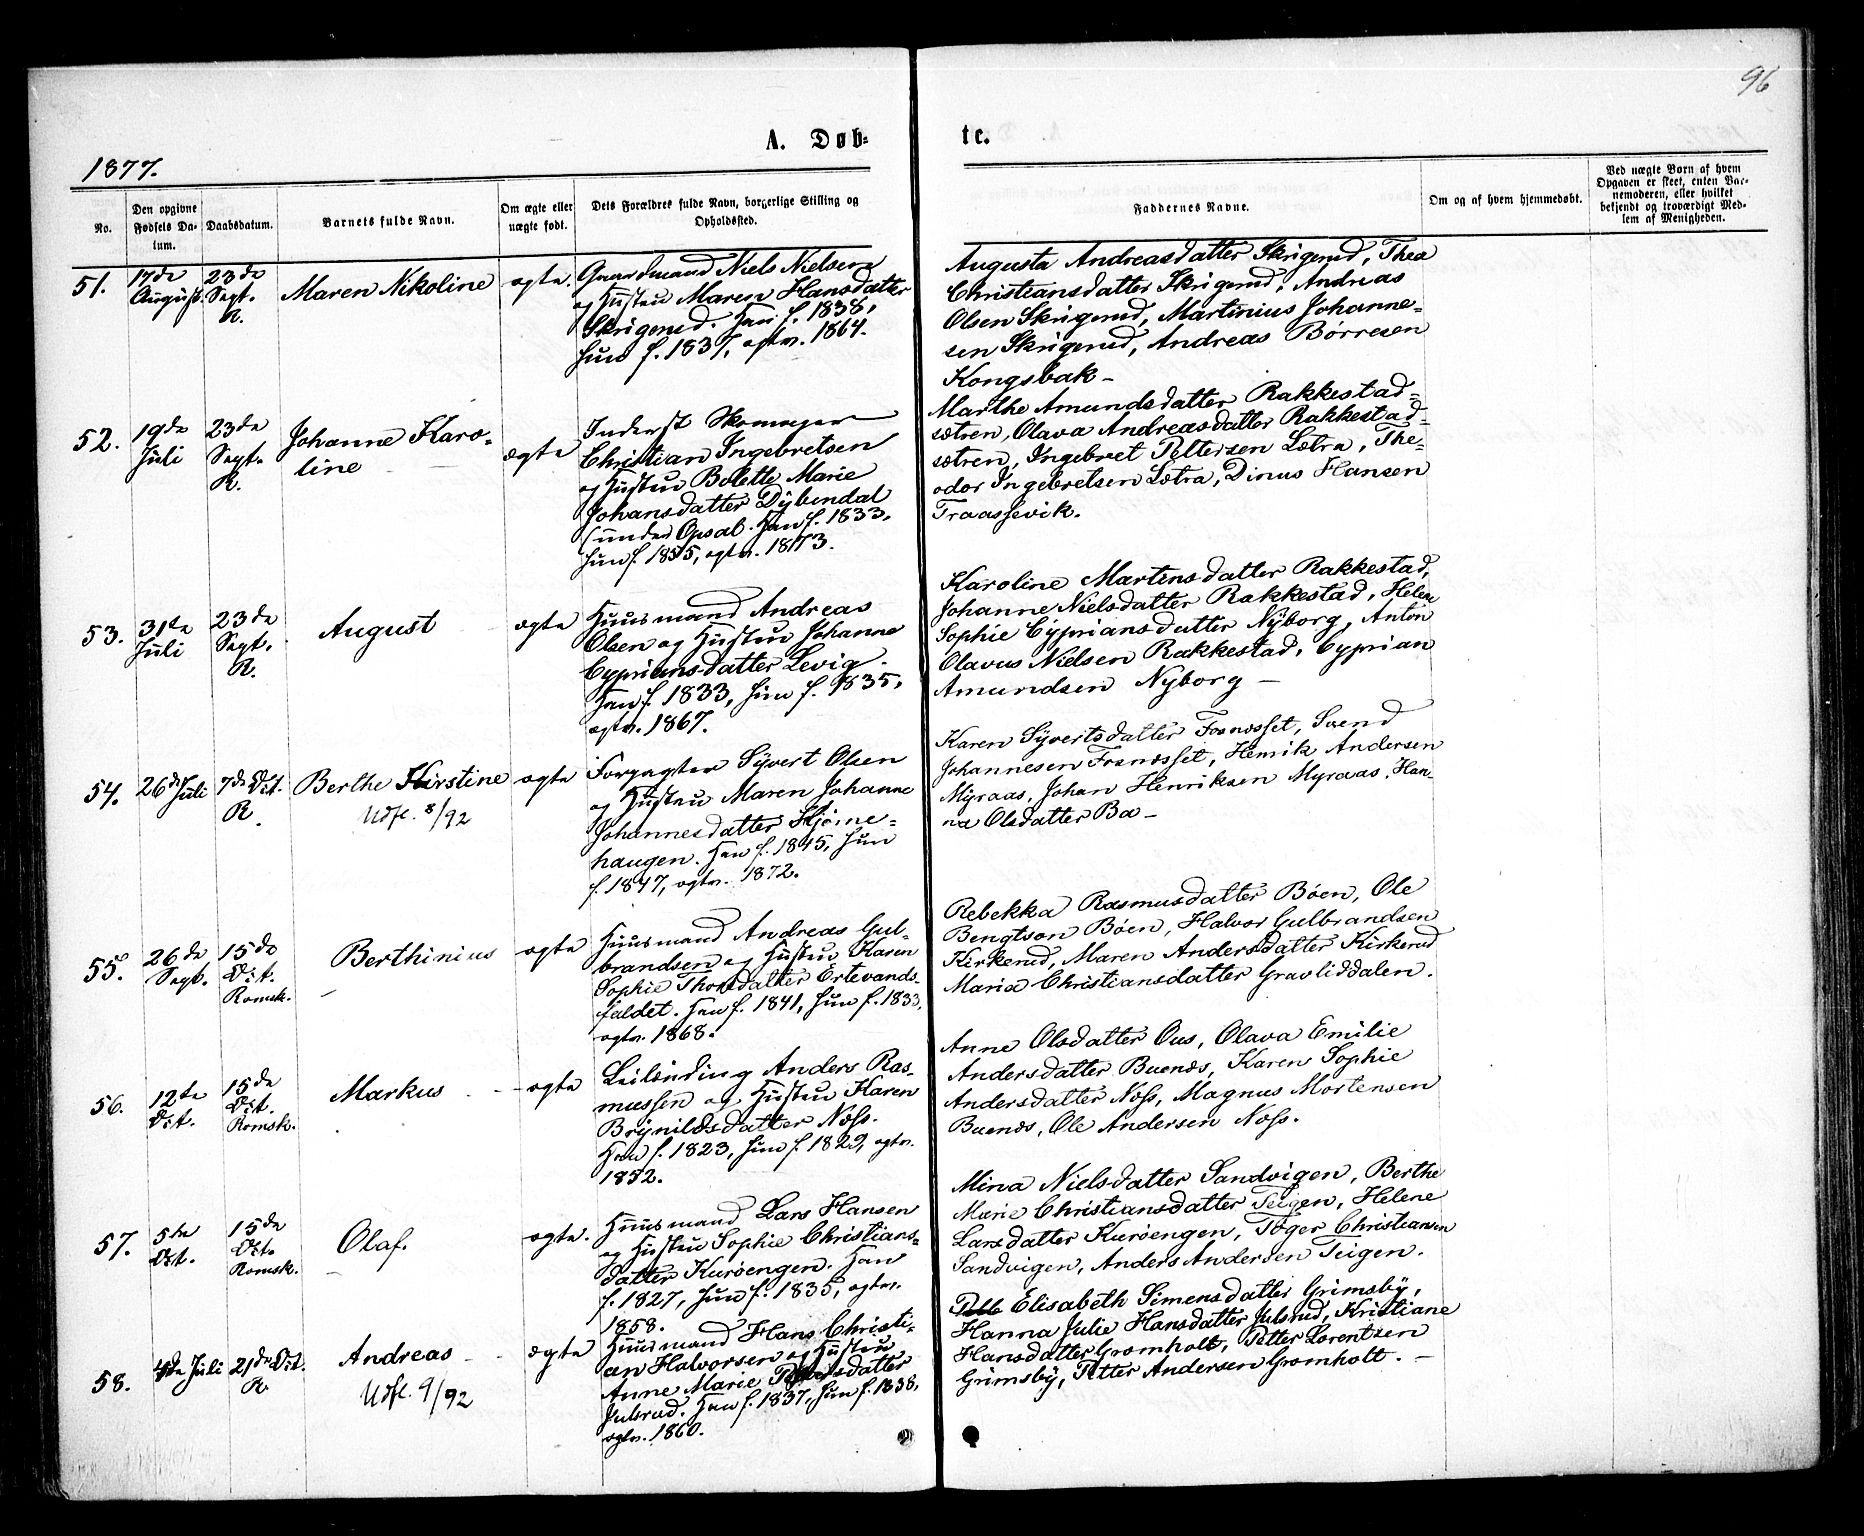 96
A. Døb-
te.
1877.
No.
Den opgivne
Fødsels Da-
tum.
Daabsdatum.
Barnets fulde Navn.
Om ægte eller
uægte født.
Dets Forældres fulde Navn, borgerlige Stilling og
Opholdssted.
Faddernes Navne.
Om og af hvem hjemmedøbt.
Ved uægte Børn af hvem
Opgaven er skeet, enten Bar-
nemoderen, eller hvilket
bekjendt og troværdigt Med-
lem af Menigheden.
51.
17de
August.
23de
Sept.
R.
Maren Nikoline
ægte.
Gaardmand Niels Nielsen
og Hustru Maren Hansdatter
Skrigerud. Han f. 1838,
hun f. 1837, ægtev. 1864.
Augusta Andreasdatter Skrigerud, Thea
Christiansdatter Skrigerud, Andreas
Olsen Skrigerud, Martinius Johanne-
sen Skrigerud, Andreas Børresen
Kongsbak -
52.
19de
Juli
23de
Sept.
R.
Johanne Karo-
line
ægte
Inderst Skomager
Christian Ingebretsen
og Hustru Bolette Marie
Johansdatter Dybendal
(under Opsal. Han f. 1833,
hun f. 1855, ægtv. 1873.
Marthe Amundsdatter Rakkestad-
sætren, Olava Andreasdatter Rakkestad-
sætren, Ingebret Pettersen Lætra, The-
odor Ingebretsen Lætra, Dinus Hansen
Traassevik.
53.
31te
Juli
23de
Sept.
R.
August
ægte
Huusmand Andreas
Olsen og Hustru Johanne
Cypriansdatter Levig.
Han f. 1833, hun f. 1835,
ægtv. 1867.
Karoline Martinsdatter Rakkestad,
Johanne Nielsdatter Rakkestad, Helene
Sophie Cypriansdatter Nyborg, Anton
Olavus Nielsen Rakkestad, Cyprian
Amundsen Nyborg -
54.
26de Juli
7de Oct.
R.
Berthe Kirstine
Udf. 8/92
ægte
Forpagter Syvert Olsen
og Hustru Maren Johanne
Johannesdatter Kjørne-
haugen. Han f. 1845, hun
f. 1847, ægtv. 1872.
Karen Syvertsdatter Fosnæsset, Svend
Johannesen Fosnæsset, Henrik Andersen
Myraas, Johan Henriksen Myraas, Han-
na Olsdatter Bo -
55.
26de
Sept.
15de
Oct.
Romsk.
Berthinius
ægte
Huusmand Andreas Gul-
brandsen og Hustru Karen
Sophie Thorsdatter Ertevands-
faldet. Han f. 1841, hun f. 1833,
ægtv. 1868.
Rebekka Rasmusdatter Bøen, Ole
Bengtson Bøen, Halvor Gulbrandsen
Kirkerud, Maren Andersdatter Kirkerud
Maria Christiansdatter Gravliddalen.
56.
12te
Oct.
15de
Oct.
Romsk.
Markus
ægte
Leilænding Anders Ras-
mussen og Hustru Karen
Brynildsdatter Næss.
Han f. 1823, hun f. 1829, ægtv.
1852.
Anne Olsdatter Ous, Olava Emilie
Andersdatter Buenæs, Karen Sophie
Andersdatter Næss, Magnus Mortensen
Buenæs, Ole Andersen Næss.
57.
5te
Oct.
15de
Oct.
Romsk.
Olaf.
ægte.
Huusmand Lars Hansen
og Hustru Sophie Christians-
datter Kurøengen. Han
f. 1827, hun f. 1835, ægtv.
1858.
Mina Nielsdatter Sandvigen, Berthe
Marie Christiansdatter Teigen, Helene
Larsdatter Kurøengen, Tøger Christiansen
Sandvigen, Anders Andersen Teigen.
58.
4de Juli
21de Oct.
R.
Andreas
Udf. 9/92
ægte
Huusmand Hans Christi-
an Halvorsen og Hustru
Anne Marie
Julsrud. Han f. 1837, hun f. 1838,
ægtv. 1860.
Elisabeth Simensdatter Grimsby,
Hanna Julie Hansdatter Julsrud, Kristiane
Hansdatter Gromholt, Petter Lorentzen
Grimsby, Petter Andersen Gromholt. -